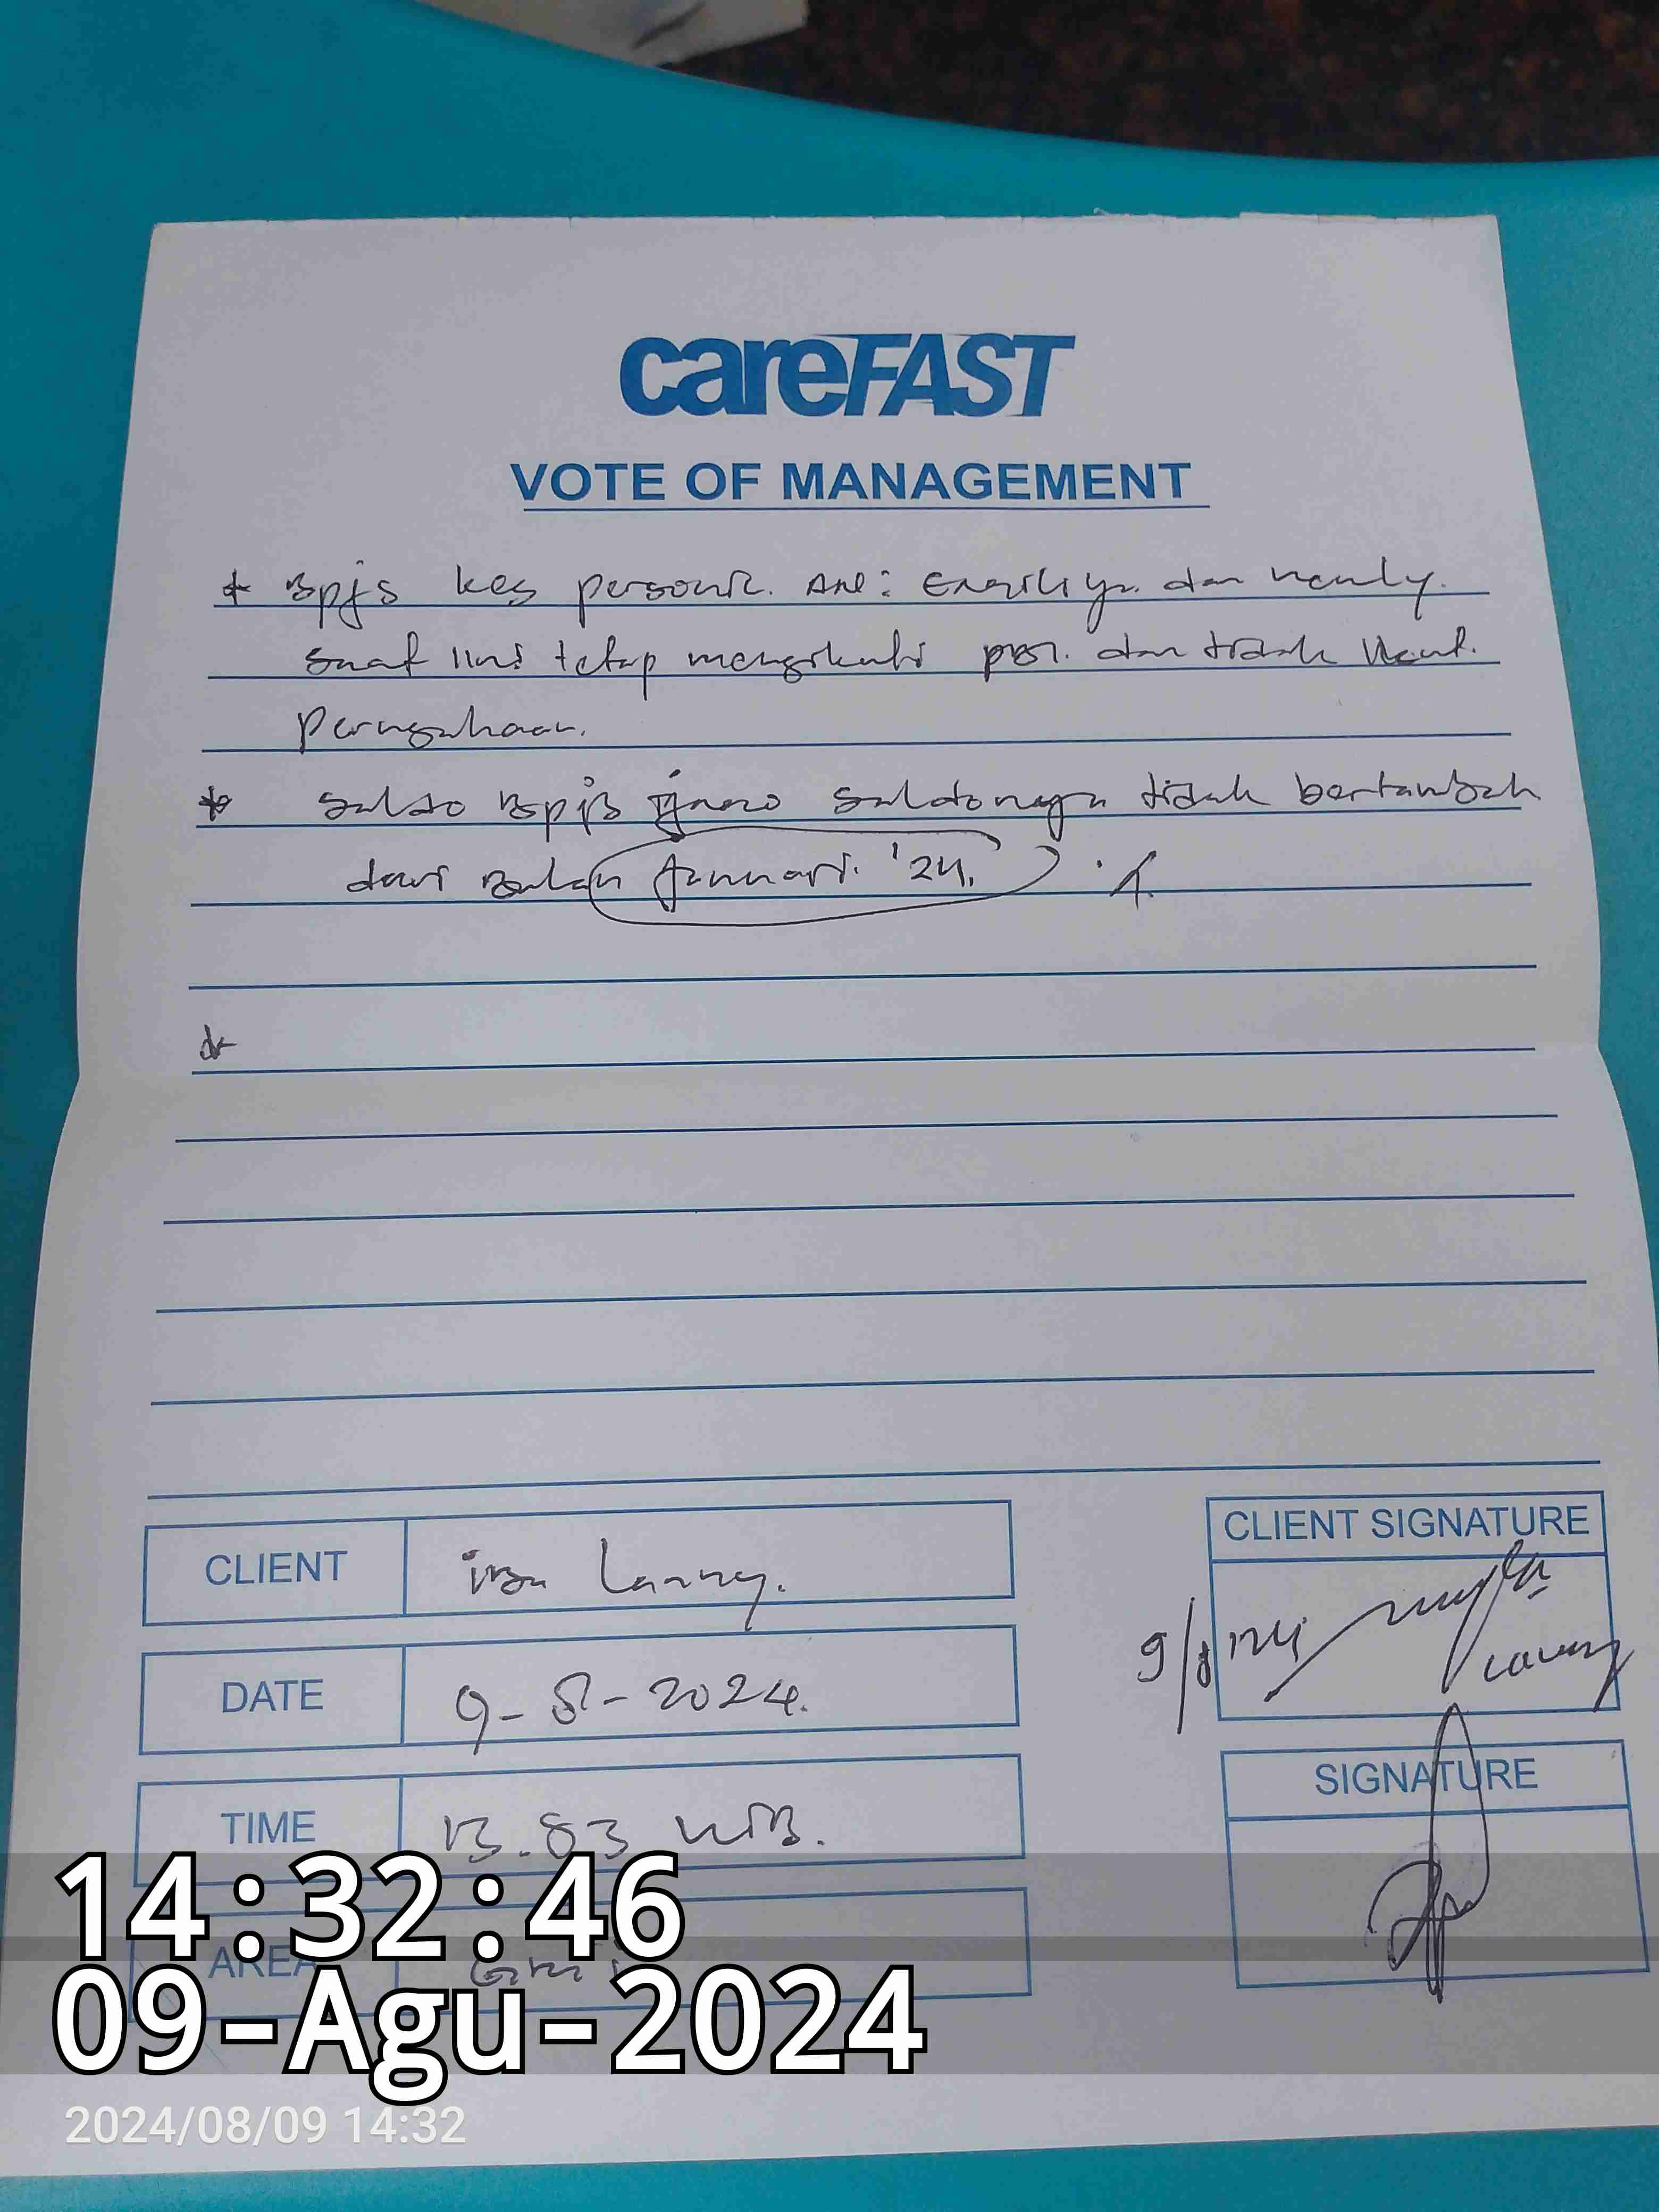 careFAST
VOTE OF MANAGEMENT
* Bpjs kes personil. AN: dan
saat ini tetap mengikuti dan tidak
perusahaan.
* saldo Bpjs saldonya tidak bertambah
dari Bulan Januari '24.
*
CLIENT ibu Lanny.
CLIENT SIGNATURE
9/8/24 Lanny
DATE 9-8-2024.
SIGNATURE
TIME WIB.
14:32:46
AREA
09-Agu-2024
2024/08/09 14:32